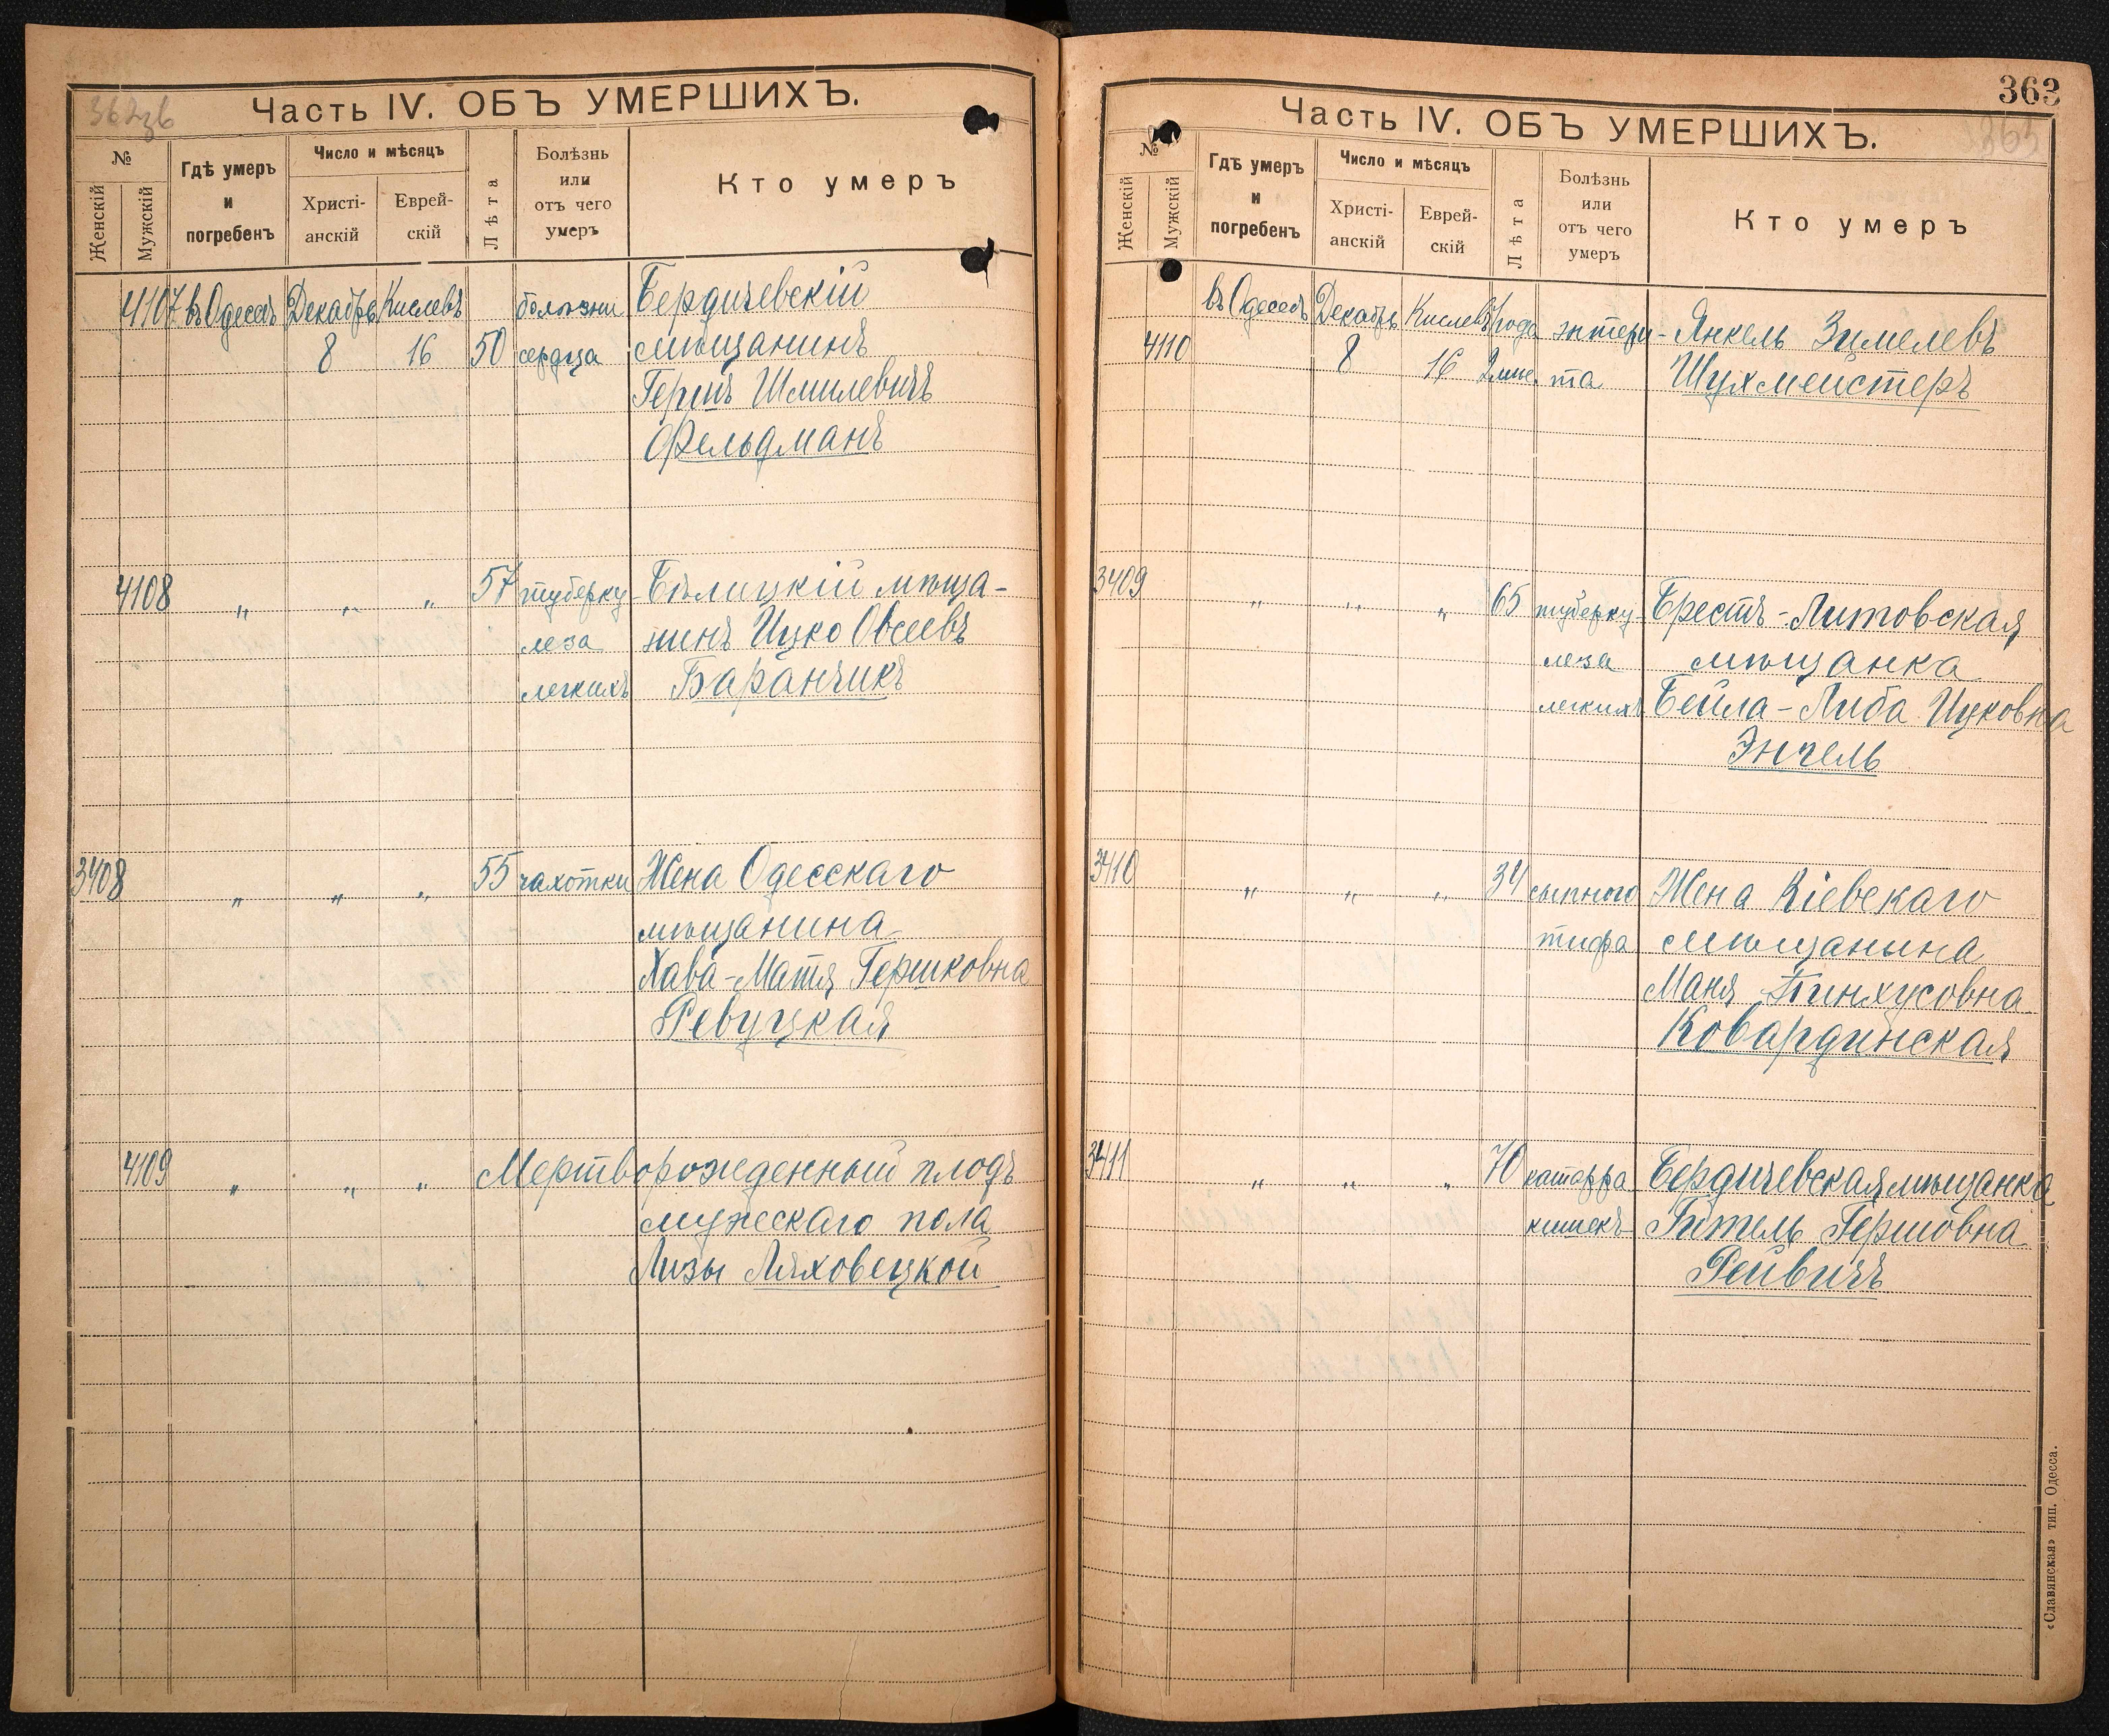 362зб
Часть IV. ОБЪ УМЕРШИХЪ.
№
Женскій
Мужскій
Гдѣ умеръ
и
погребенъ
Число и мѣсяцъ
Христі-
анскій
Еврей-
скій
Лѣта
Болѣзнь
или
отъ чего
умеръ
Кто умеръ
4107 въ Одессѣ Декабрь Кислевъ болѣзни Бердичевскій
8 16 50 сердца мѣщанинъ
Гершъ Шмилевичъ
Фельдманъ
4108 " " " 57 туберку- Бѣлицкій мѣща-
леза нинъ Ицко Овсеевъ
легкихъ Баранчикъ
3408 " " " 55 чахотки Жена Одесскаго
мѣщанина
Хава-Матя Гершковна
Ревуцкая
4109 " " " Мертворожденный плодъ
мужескаго пола
Лизы Ляховецкой
363
Часть IV. ОБЪ УМЕРШИХЪ.
363
№
Женскій
Мужскій
Гдѣ умеръ
и
погребенъ
Число и мѣсяцъ
Христі-
анскій
Еврей-
скій
Лѣта
Болѣзнь
или
отъ чего
умеръ
Кто умеръ
въ Одессѣ Декабрь Кислевъ 1 года энтери- Янкель Зимелевъ
4110 8 16 2 мѣс. та Шухмейстеръ
3409 " " " 65 туберку- Брестъ-Литовская
леза мѣщанка
легкихъ Бейла-Либа Ицковна
Энгель
3410 " " " 34 сыпного Жена Кіевскаго
тифа мѣщанина
Маня Пинхусовна
Ковардинская
3411 " " " 70 катарра Бердичевская мѣщанка
кишекъ Гитель Гершовна
Рейвичъ
«Славянская» тип. Одесса.